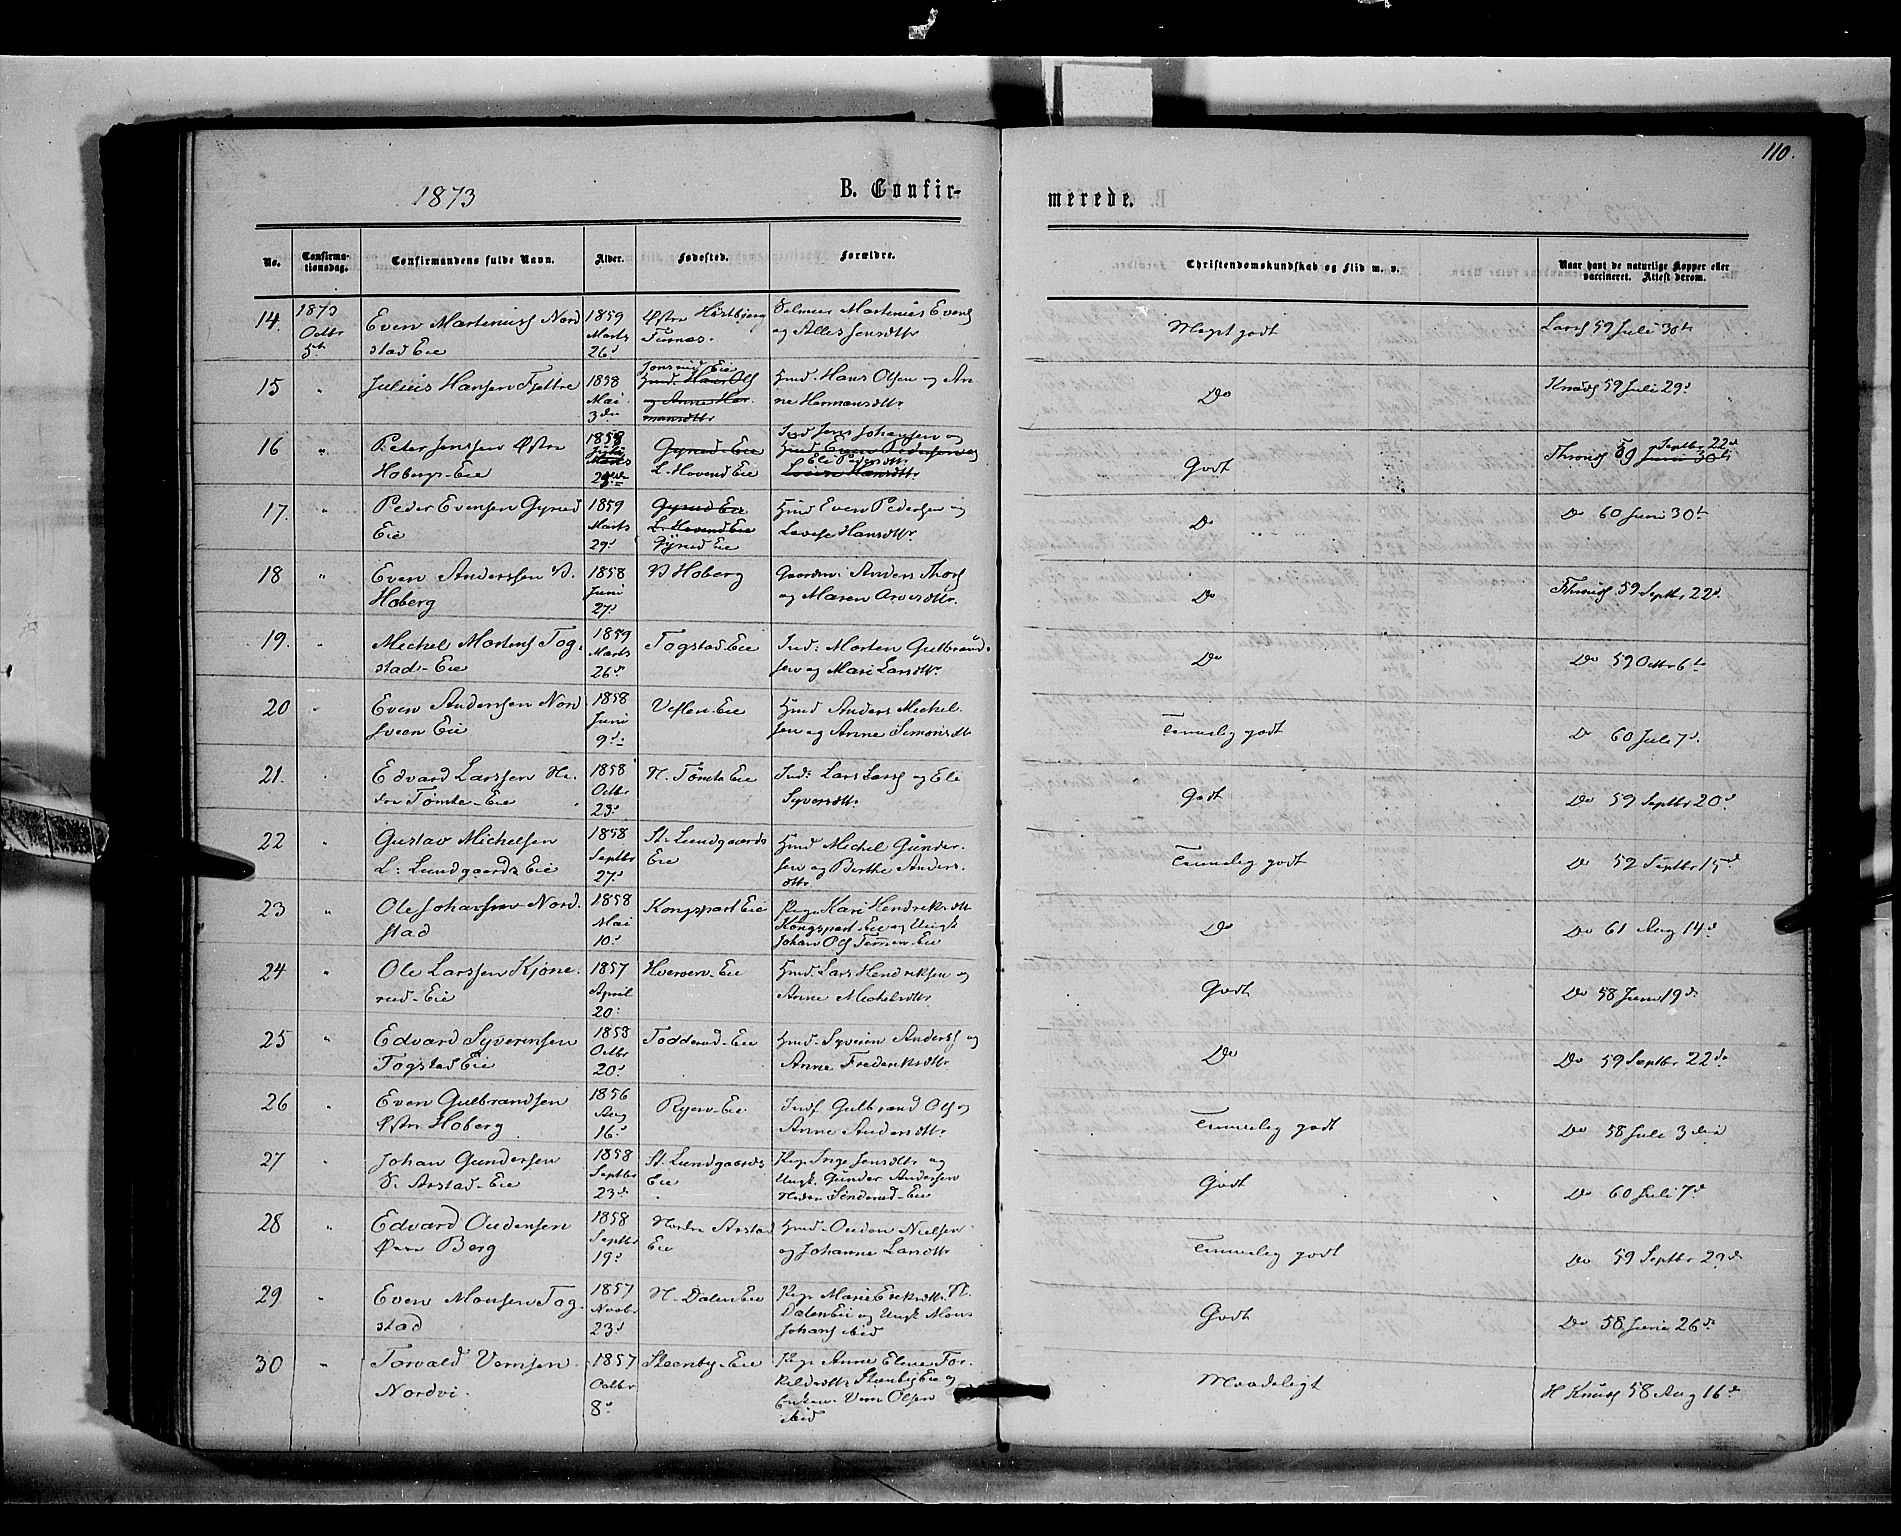 110.
1873
B. Confir-
merede.
No.
Confirma-
tionsdag.
Confirmandens fulde Navn.
Alder.
Fødested.
Forældre.
Christendomskundskab og Flid m. v.
Naar havt de naturlige Kopper eller
vaccineret. Attest derom.
14. 1873 Octbr 5te
Even Martinius Nord
stad Eie
1859 Marts 26d
Østre
Furnæs.
Martinius Evens
og Jensdttr
Meget godt
Lars 59 Juli 30te
15 "
Julius Hansen Fjettre
1858 Mai 3die
Eie
Hmd. Hans Ols
og Anne Her-
mansdttr
Hmd. Hans Olsen og An
ne Hermansdttr
Do
Knuds 59 Juli 29d
16 "
Peter Jenssen Østre
Hobergs-Eie
1858
Gyrud-Eie
L. Hovend Eie
Ind Jens Johansen og
Hmd Even Pedersen og
Eli Pedersdttr
Lovise Hansdttr
Godt
Thronds 59 Septbr 22d
Juni 30te
17. "
Peder Evensen Gyrud
Eie
1859 Marts 29d
Gyrud Eie
L. Hovend Eie
Gyrud Eie
Hmd Even Pedersen og
Lovise Hansdttr
Do
Do 60 Juni 30te
18 "
Even Anderssen V.
Hoberg
1858 Juni 27d
V Hoberg
Gaardm. Anders Thors
og Maren Arvesdttr.
Do
Thronds 59 Septbr 22d.
19. "
Michel Mortens Tog-
stad-Eie
1859 Marts 26d
Togstad-Eie
Ind: Morten Gulbrand-
sen og Mari Larsdttr
Do
Do 59 Octbr 6te
20 "
Even Andersen Nord
sveen Eie
1858 Juni 9d
Veflen-Eie
Hmd Anders Michel-
sen og Anne Simonsdttr
Temmelig godt
Do 60 Juli 7d.
21. "
Edvard Larssen Ne-
dre Tømte-Eie
1858 Octbr 23d
N. Tømte Eie
Ind: Lars Lars og Eli
Syversdttr
Godt
Do 59 Septbr 20d
22 "
Gustav Michelsen
L: Lundgaards Eie
1858 Septbr 27d
St. Lundgaards
Eie
Hmd Michel Gunder-
sen og Berthe Anders-
dttr
Temmelig godt
Do 52 Septbr 15d
23 "
Ole Johansen Nord-
stad
1858 Mai 10d
Kongspart Eie
Pige Kari Hendriksdttr
Kongspart-Eie og Ungk
Johan Ols Eie
Do
Do 61 Aug 14d
24 "
Ole Larssen Kjøne-
rud-Eie
1857 April 20d
Hverven-Eie
Hmd. Lars Hendriksen og
Anne Michelsdttr
Godt
Do 58 Juni 19d
25 "
Edvard Syverinsen
Togstad Eie
1858 Octbr 20d
Todderud-Eie
Hmd. Syverin Anders og
Anne Frederiksdttr
Do
Do 59 Septbr 22d
26 "
Even Gulbrandsen
Østre Hoberg
1856 Aug 16d
Ryen-Eie
Inds Gulbrand Ols og
Anne Andersdttr
Temmelig godt
Do 58 Juli 3die
27 "
Johan Gundersen
S. Arstad-Eie
1858 Septbr 23d
St. Lundgaards
Eie
Pige Inge Jensdttr og
Ungk. Gunder Andersen
Nedre Eie
Godt
Do 60 Juli 7d
28 "
Edvard Oudensen
Øvre Berg
1858 Septbr 19d
Nordre Arstad
Eie
Hmd. Ouden Nielsen
og Johanne Larsdttr
Temmelig godt
Do 59 Septbr 29d
29 "
Even Monsen Tog-
stad
1857 Novbr 23d
N. Dalen Eie
Pige Marie Eriksdttr N.
Dalen Eie og Ungk Mons
Johans ibid
Godt
Do 58 Juni 26d
30 "
Torvald Vernsen
Nordvi.
1857 Octbr 8d
Steenby-Eie
Pige Anne Elene Tor-
kildsdttr Steenby Eie og
Enkem. Vern Olsen
ibid
Maadeligt
H Knuds 58 Aug 16d